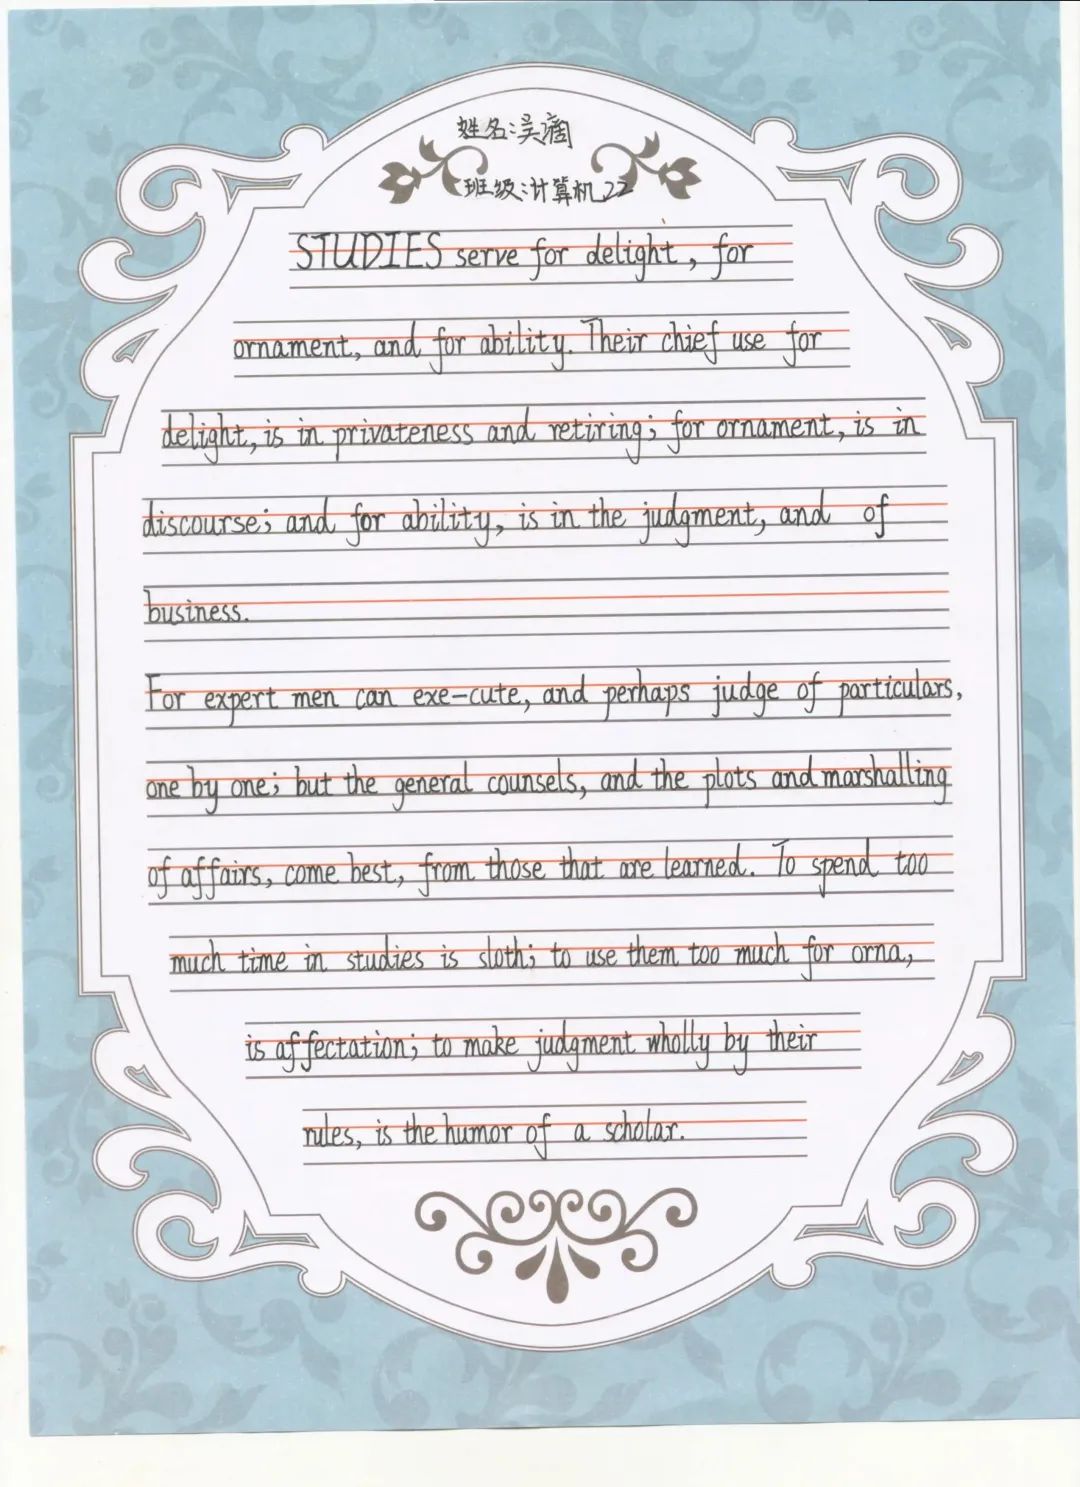 姓名:吴
班级:计算机22
STUDIES serve for delight, for
ornament, and for ability. Their chief use for
delight, is in privateness and retiring; for ornament, is in
discourse; and for ability, is in the judgment, and of
business.
For expert men can exe-cute, and perhaps judge of particulars,
one by one; but the general counsels, and the plots and marshalling
of affairs, come best, from those that are learned. To spend too
much time in studies is sloth; to use them too much for orna,
is affectation; to make judgment wholly by their
rules, is the humor of a scholar.